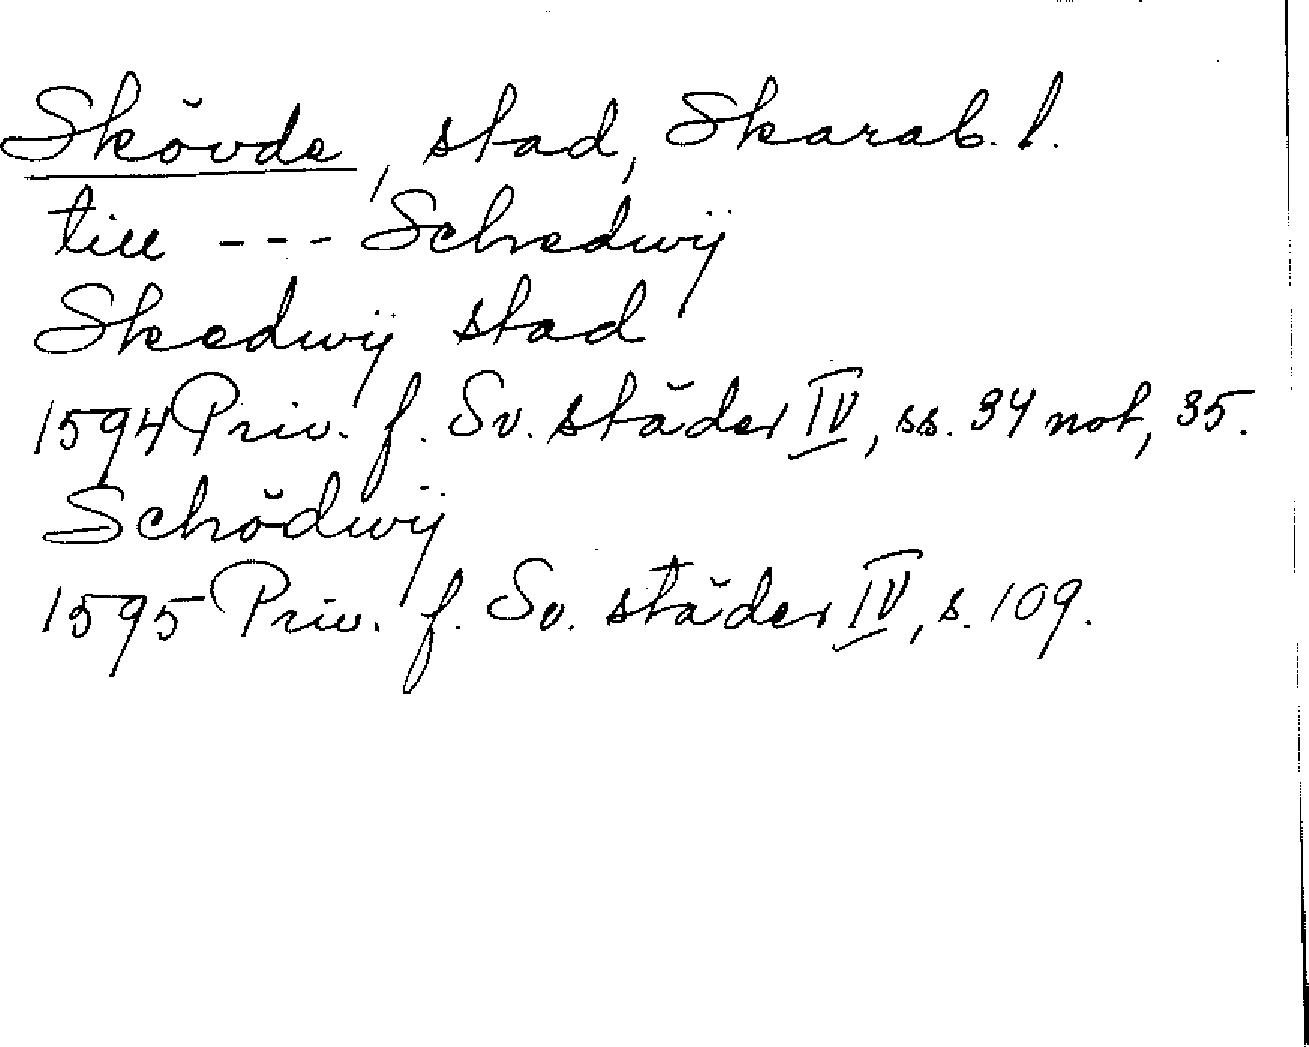 Skövde, stad, Skarab. l.
till --- Schedwij
Skedwij stad
1594 Priv. f. Sv. städer IV, ss. 34 not, 35.
Schödwij
1595 Priv. f. Sv. städer IV, s. 109.